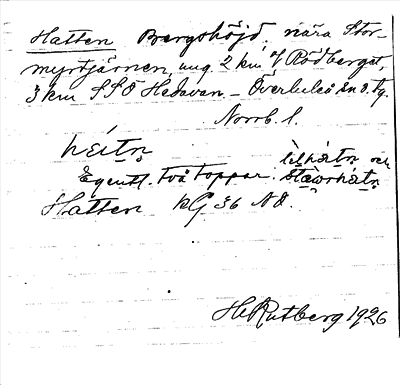 Hatten Bergshöjd, nära Stor-
myrtjärnen, ung. 2 km V Rödberget,
3 km SSÖ Hedavan. – Överluleå sn o. tg.
Norrb. l.
hátn̥
Egentl. två toppar. och
Hatten kG 36 NO.
H. Rutberg 1926